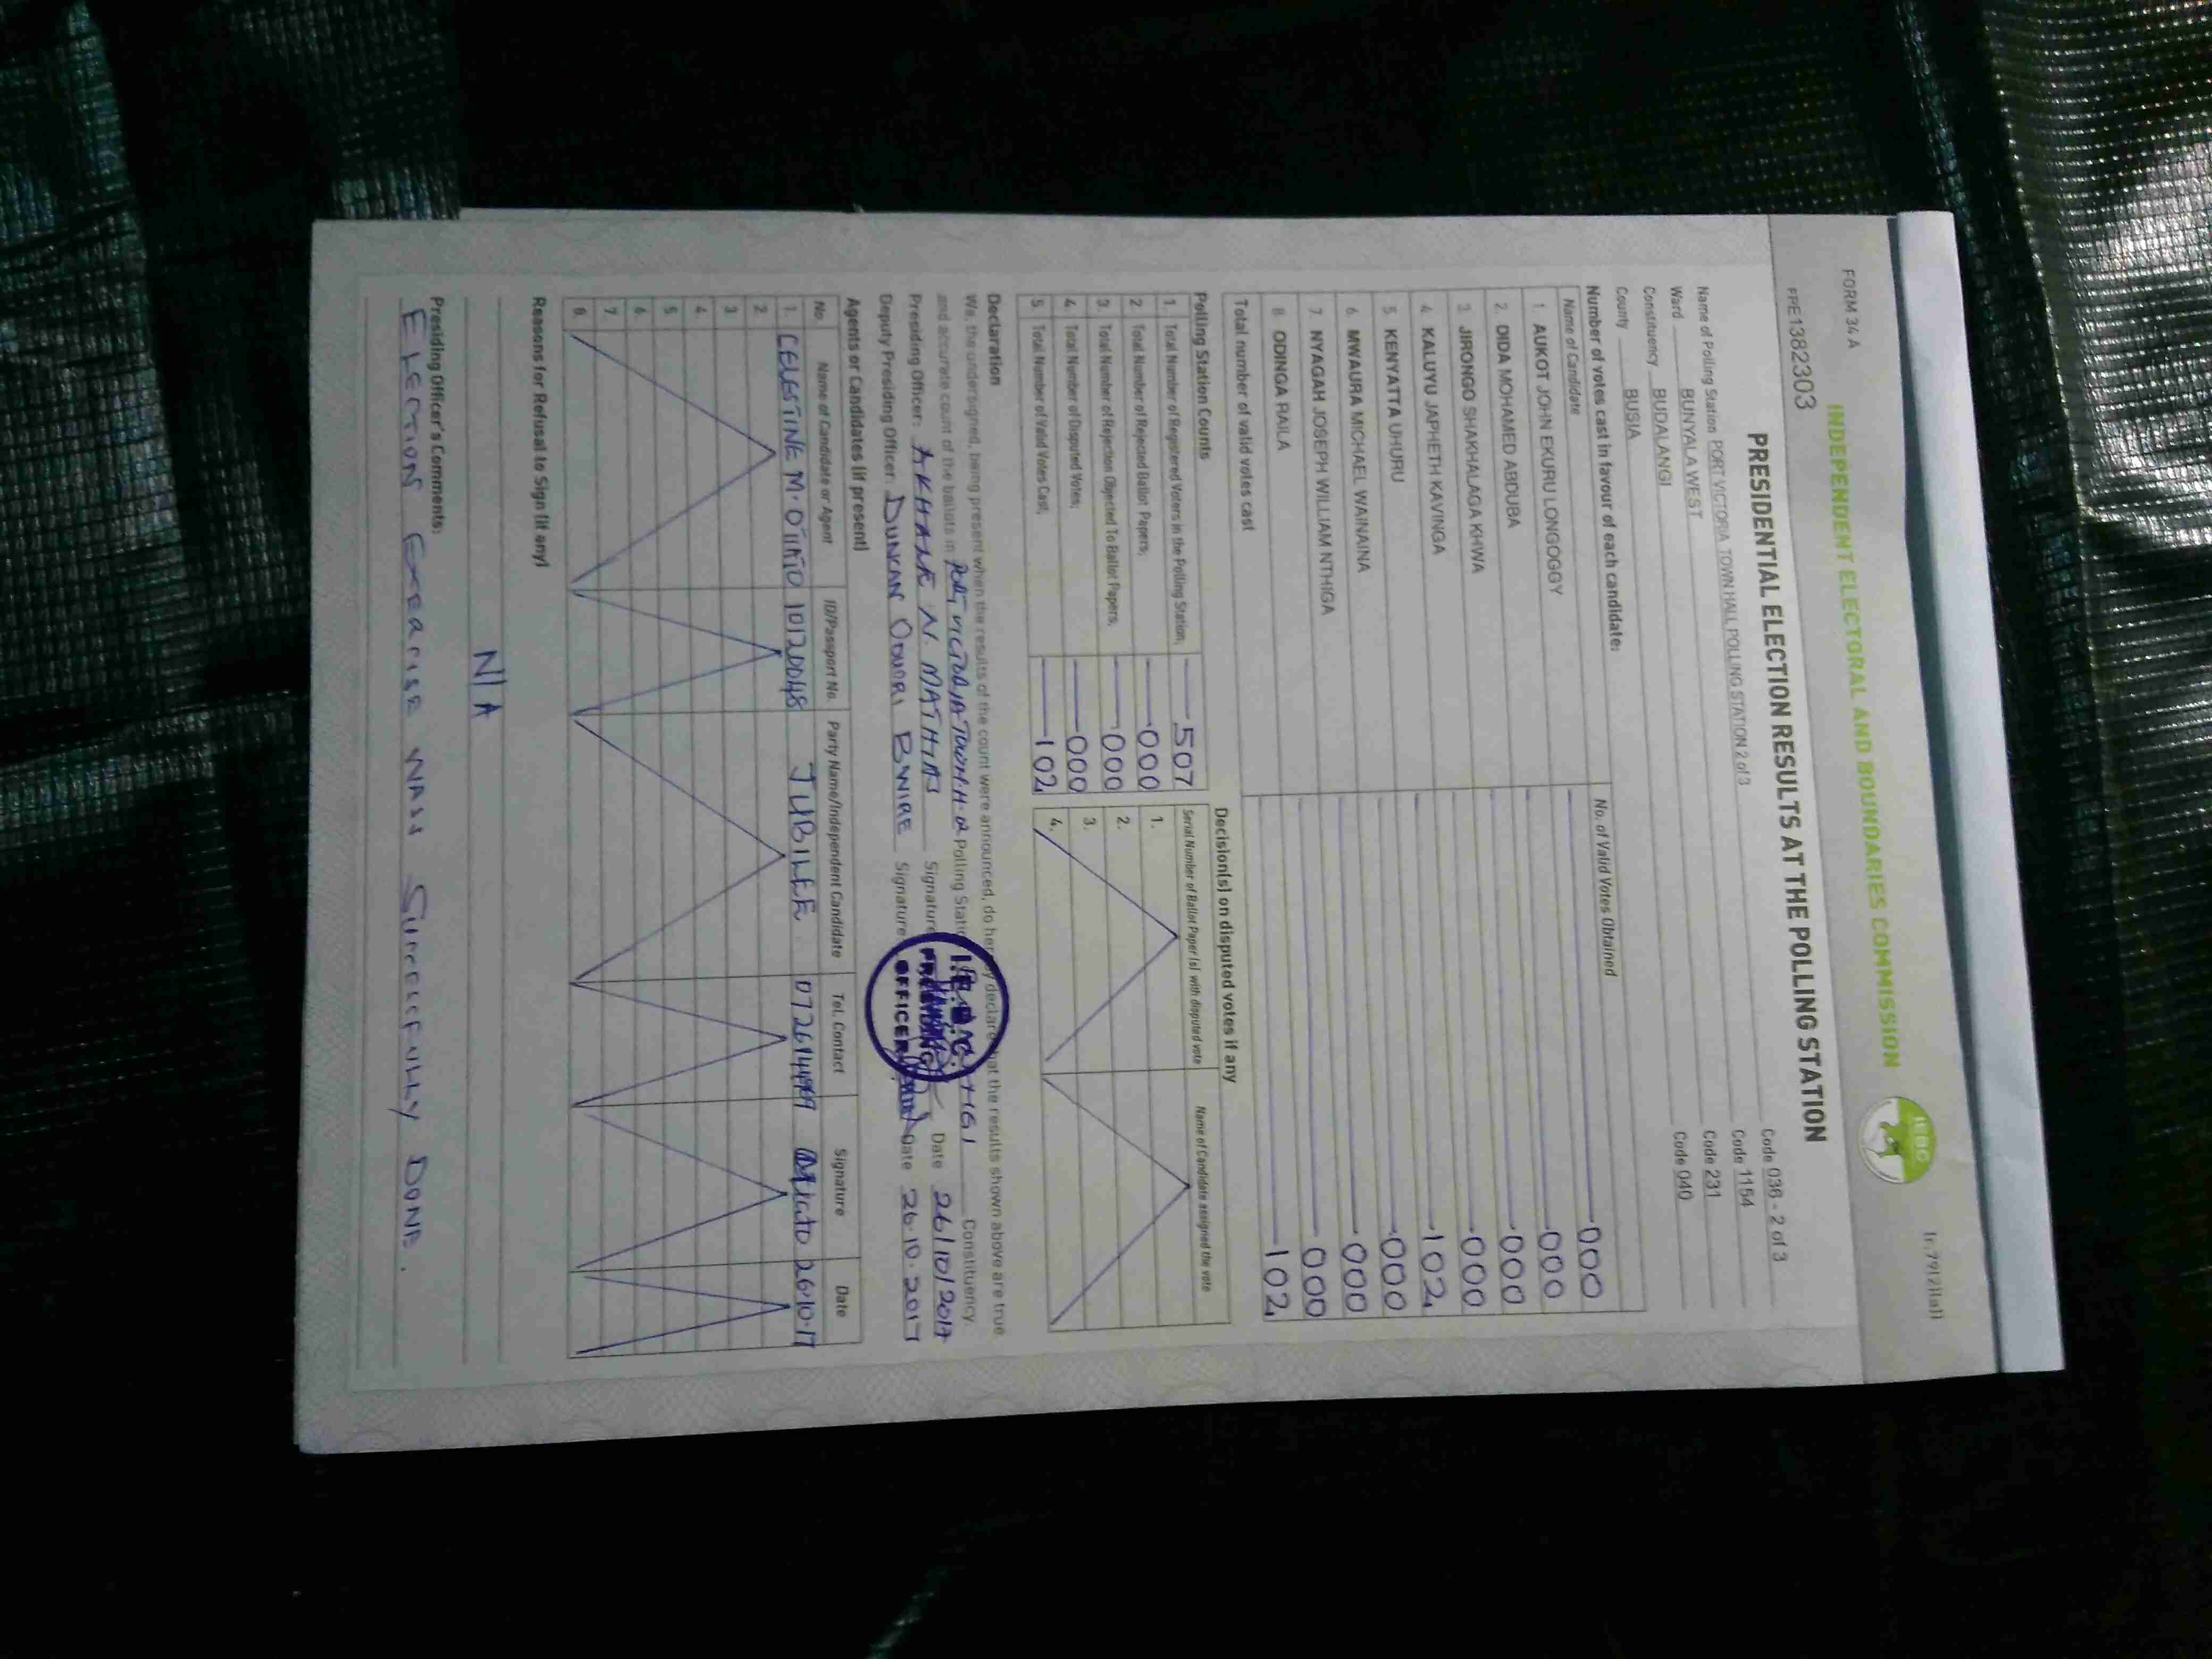 FORM 34A
[r.79(2)(a)]
INDEPENDENT ELECTORAL AND BOUNDARIES COMMISSION
IEBC
FPE1382303
PRESIDENTIAL ELECTION RESULTS AT THE POLLING STATION
Name of Polling Station PORT VICTORIA TOWN HALL POLLING STATION 2 of 3 Code 036 - 2 of 3
Ward BUNYALA WEST Code 1154
Constituency BUDALANGI Code 231
County BUSIA Code 040
Number of votes cast in favour of each candidate:
Name of Candidate No. of Valid Votes Obtained
1. AUKOT JOHN EKURU LONGOGGY 000
2. DIDA MOHAMED ABDUBA 000
3. JIRONGO SHAKHALAGA KHWA 000
4. KALUYU JAPHETH KAVINGA 000
5. KENYATTA UHURU 102
6. MWAURA MICHAEL WAINAINA 000
7. NYAGAH JOSEPH WILLIAM NTHIGA 000
8. ODINGA RAILA 000
Total number of valid votes cast 102
Polling Station Counts
1. Total Number of Registered Voters in the Polling Station; 507
2. Total Number of Rejected Ballot Papers; 000
3. Total Number of Rejection Objected To Ballot Papers; 000
4. Total Number of Disputed Votes; 000
5. Total Number of Valid Votes Cast; 102
Decision(s) on disputed votes if any
Serial Number of Ballot Paper (s) with disputed vote Name of Candidate assigned the vote
1.
2.
3.
4.
Declaration
We, the undersigned, being present when the results of the count were announced, do hereby declare that the results shown above are true
and accurate count of the ballots in PORT VICTORIA TOWN H. 2 Polling Station Constituency.
Presiding Officer: AKHAXE N. MATHIAS Signature Date 26/10/2017
Deputy Presiding Officer: DUNCAN ODUORI BWIRE Signature Date 26.10.2017
PRESIDING
OFFICER
Agents or Candidates (if present)
No. Name of Candidate or Agent ID/Passport No. Party Name/Independent Candidate Tel. Contact Signature Date
1. CELESTINE M. OJIAYO 10120048 JUBILEE 26.10.17
2.
3.
4.
5.
6.
7.
8.
Reasons for Refusal to Sign (if any)
N/A
Presiding Officer's Comments:
ELECTION EXERCISE WAS SUCCESSFULLY DONE.